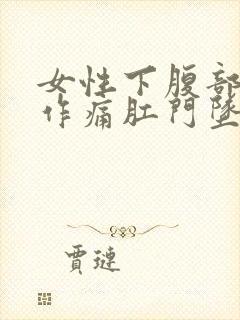 女性下腹部
作痛肛門墜
賈璉